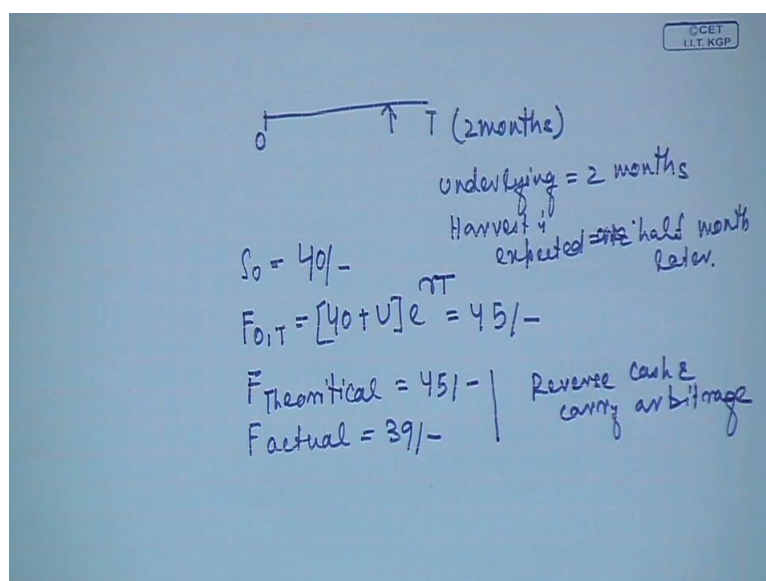 ©CET
I.I.T. KGP
0 T (2 months)
underlying = 2 months
Harvest is
expected = half month
later.
S0 = 40/-
F0,T = [40 + U] e^rT = 45/-
F Theoritical = 45/-
F actual = 39/-
Reverse cash &
carry arbitrage